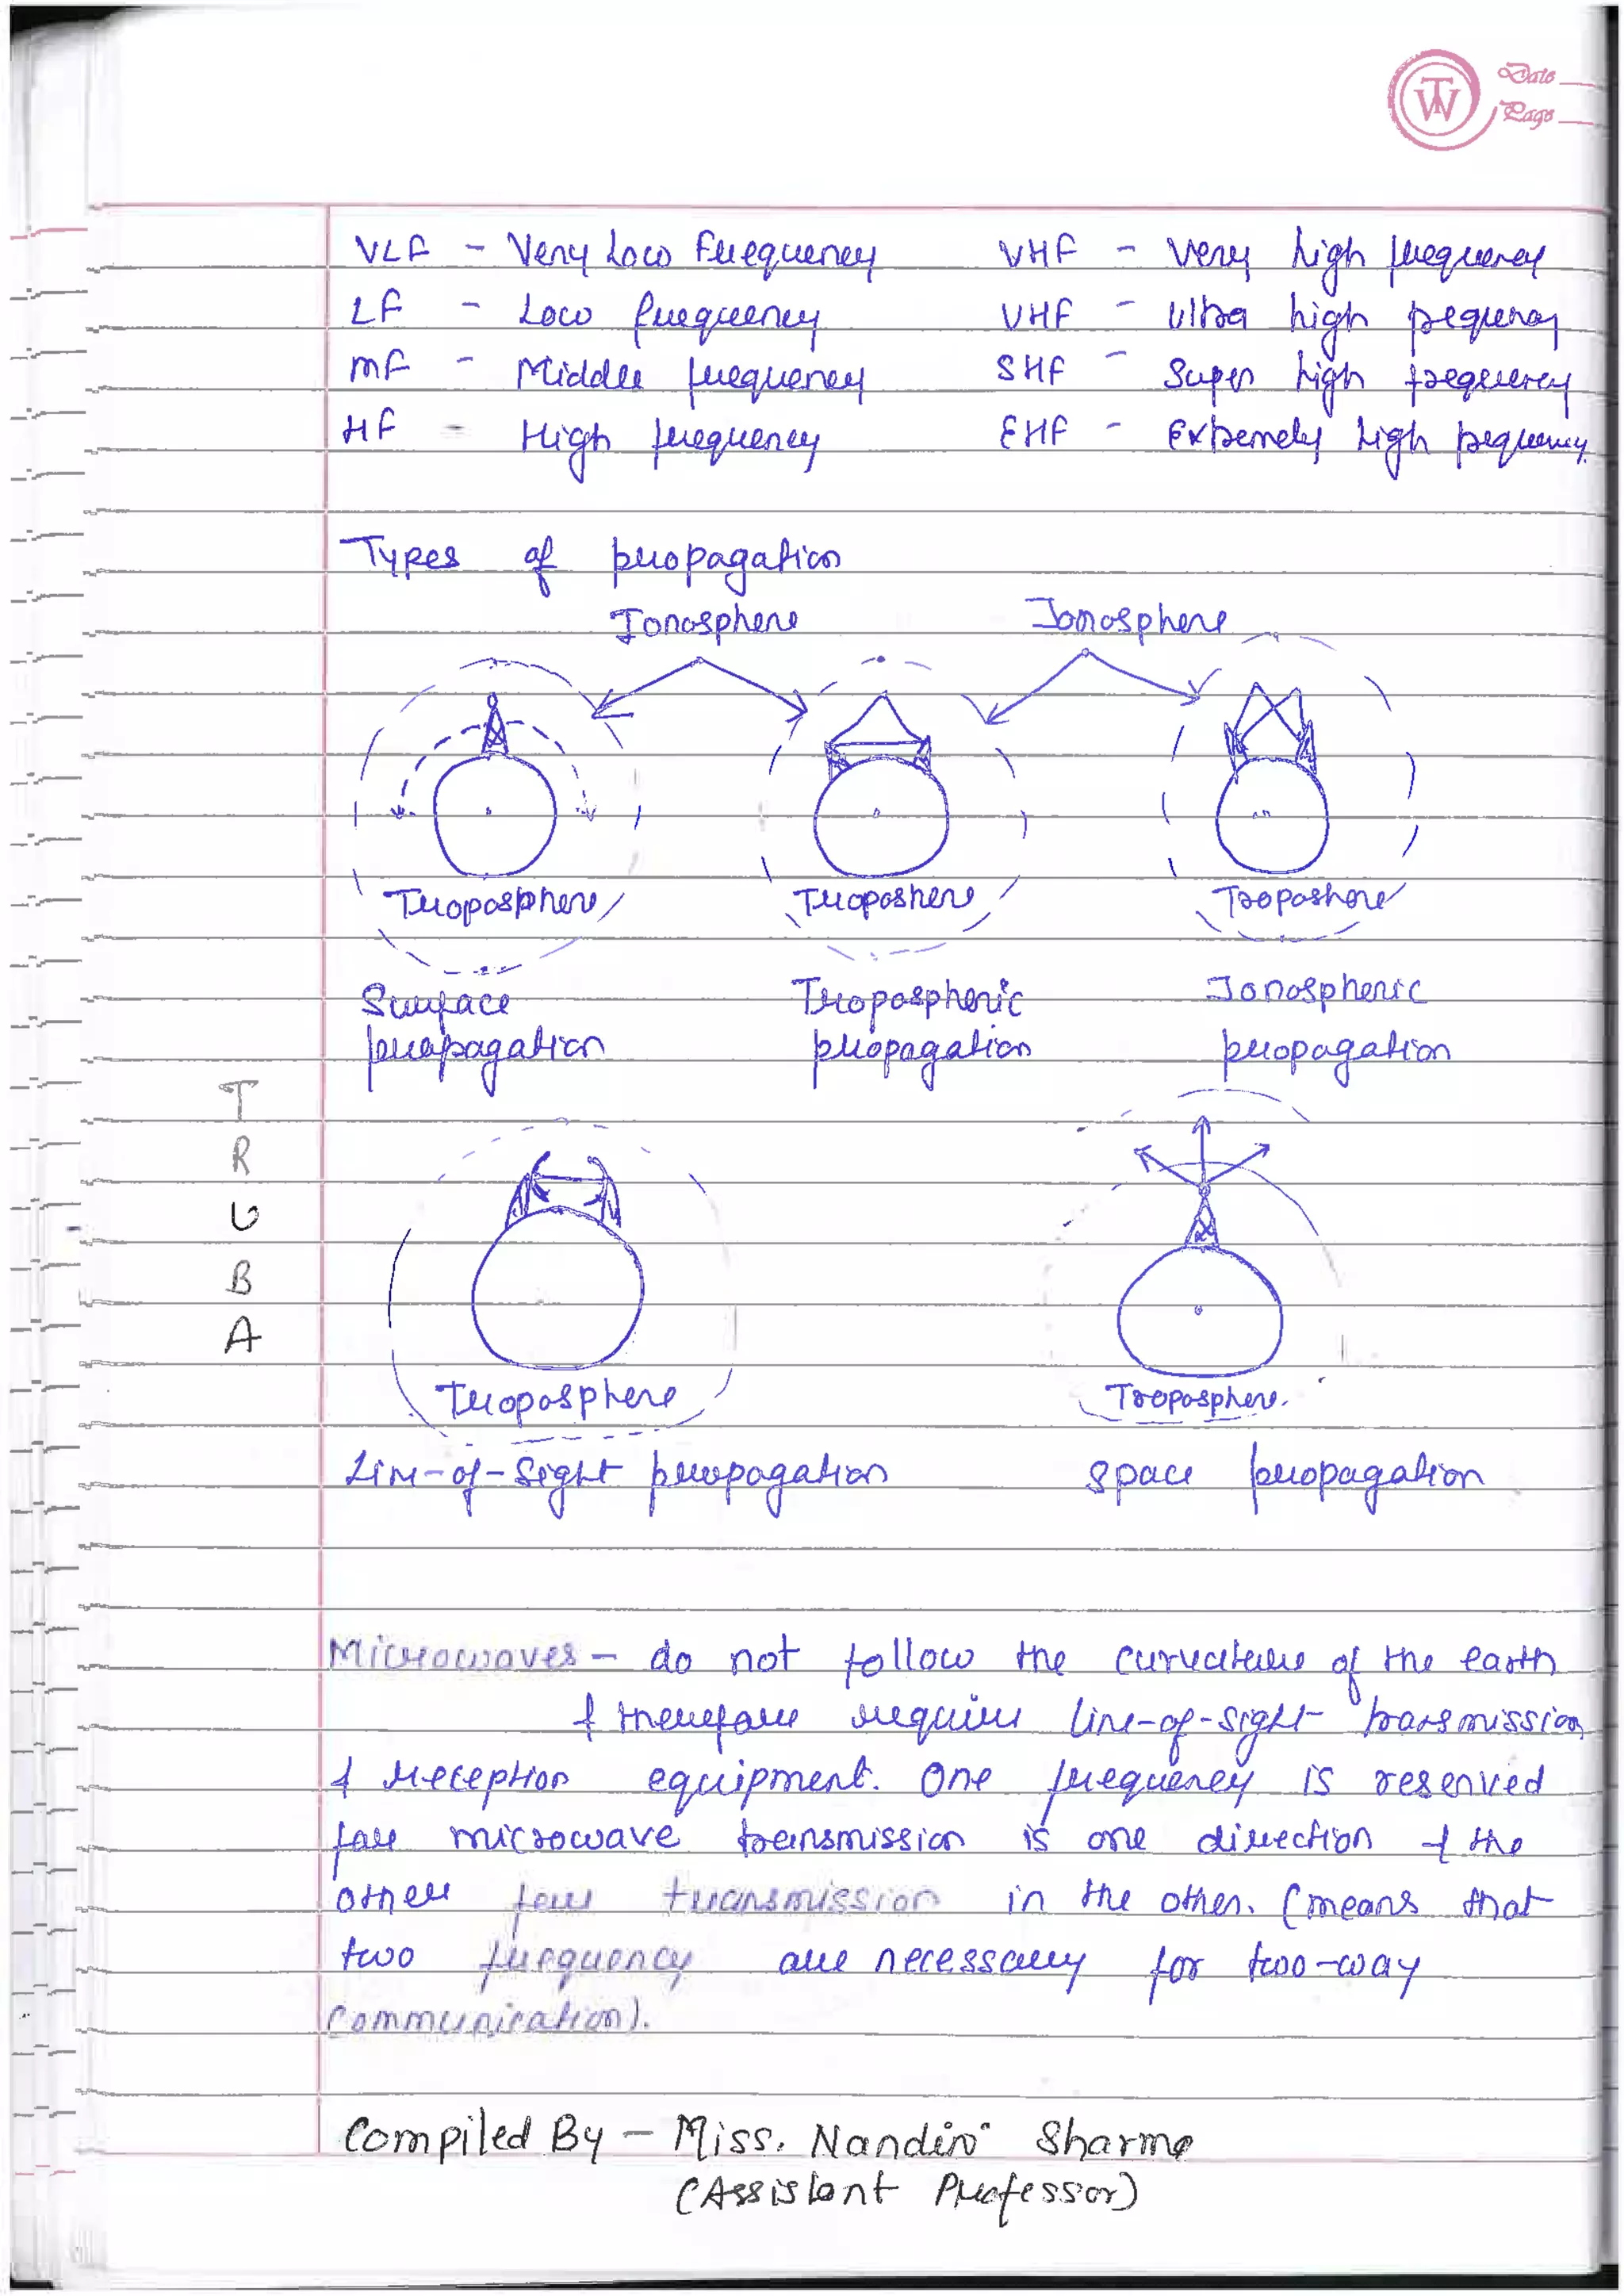 Date
Page
TW
VLF - Very Low Frequency VHF - Very high frequency
LF - Low frequency UHF - Ultra high frequency
MF - Middle frequency SHF - Super high frequency
HF - High frequency EHF - Extremely high frequency
Types of propagation
Ionosphere Ionosphere
Troposphere Troposhere Troposhere
Surface Tropospheric Ionospheric
propagation propagation propagation
T
R
U
B
A
Troposphere Troposphere.
Line-of-Sight propagation Space propagation
Microwaves - do not follow the curvature of the earth
& therefore require line-of-sight transmission
& reception equipment. One frequency is reserved
for microwave transmission is one direction & the
other for transmission in the other. (means that
two frequency are necessary for two-way
communication).
Compiled By - Miss. Nandini Sharma
(Assistant Professor)